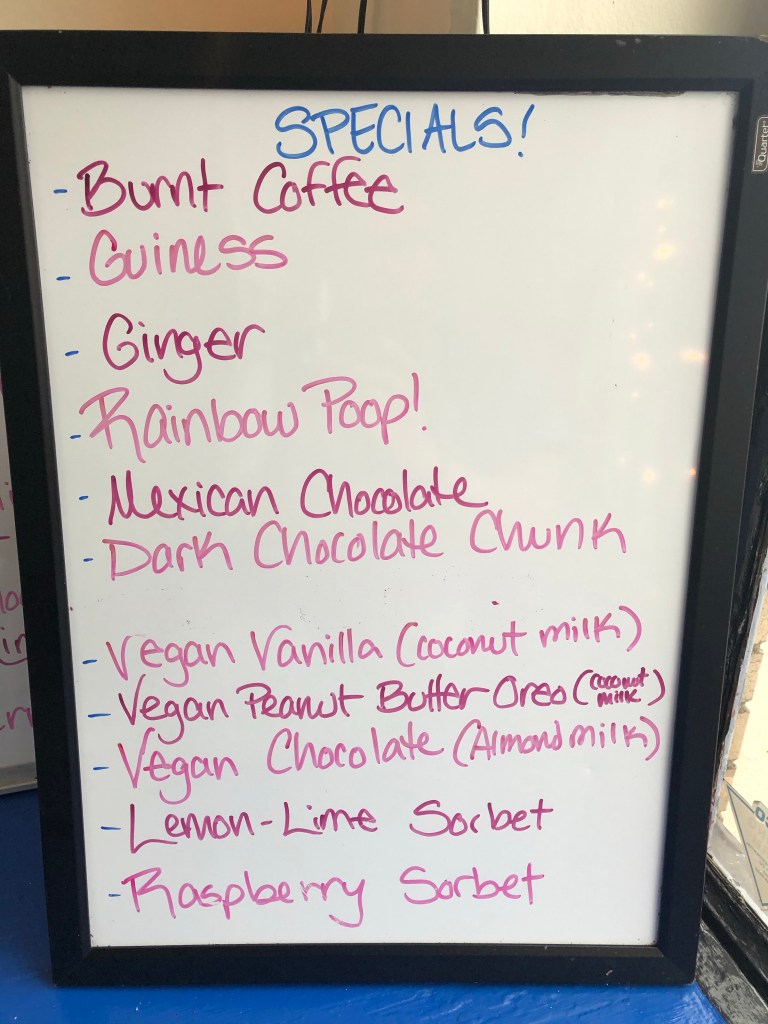 SPECIALS!
- Burnt Coffee
- Guiness
- Ginger
- Rainbow Poop!
- Mexican Chocolate
- Dark Chocolate Chunk
- Vegan Vanilla (coconut milk)
- Vegan Peanut Butter Oreo (coconut milk)
- Vegan Chocolate (Almond milk)
- Lemon-Lime Sorbet
- Raspberry Sorbet
Quartet